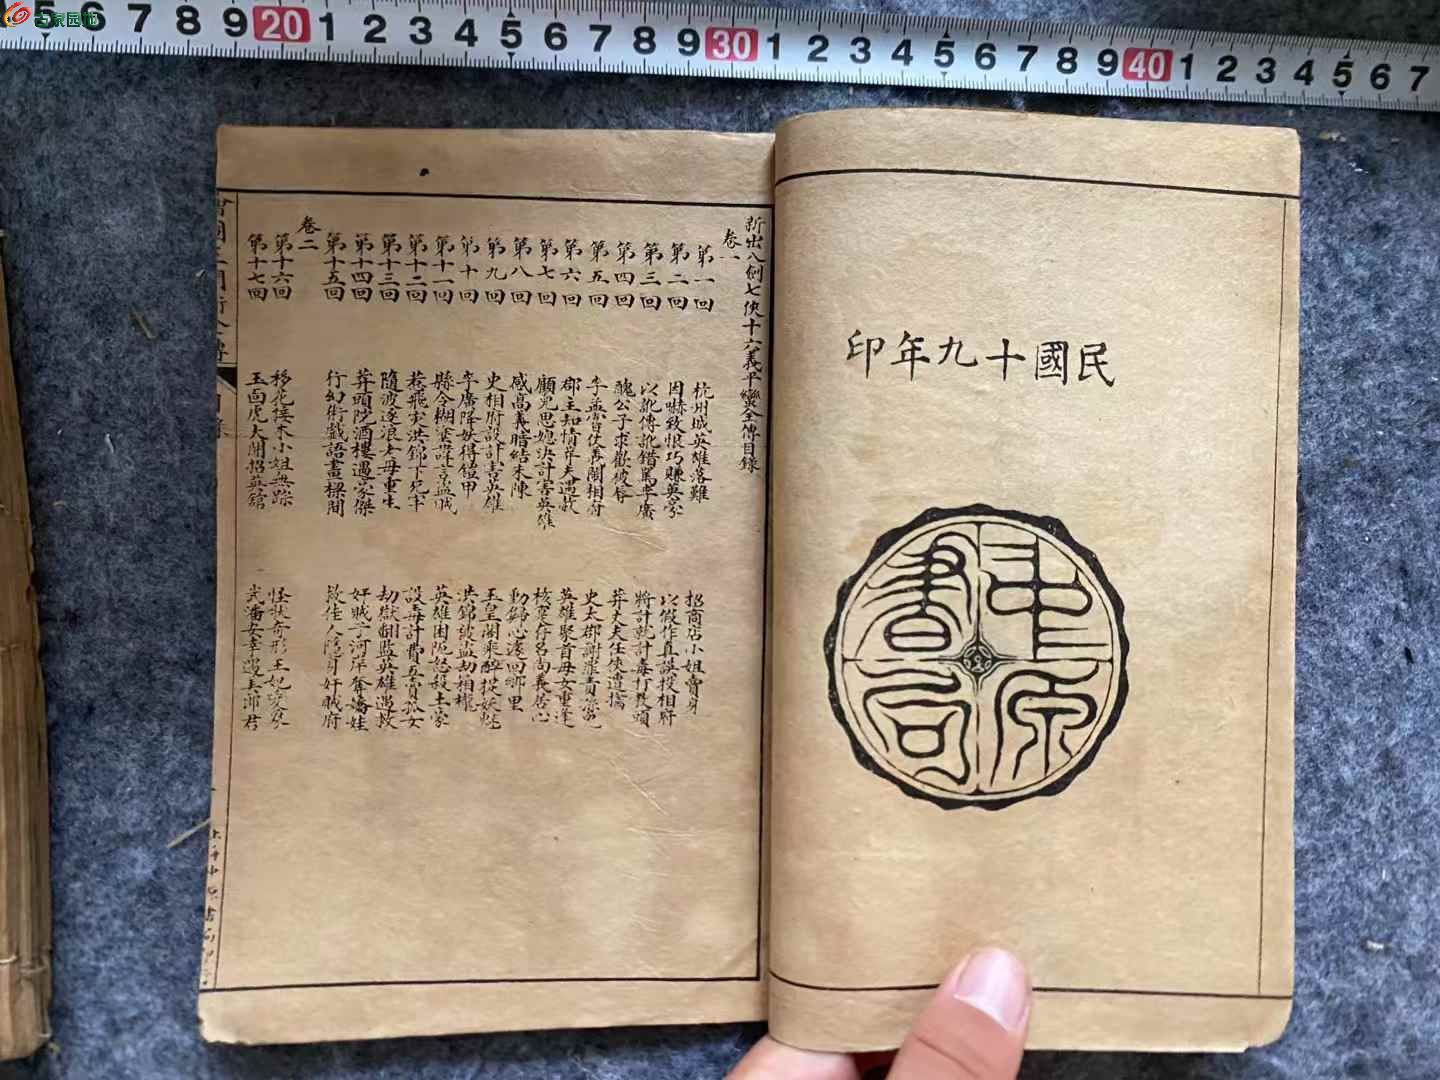 民國十九年印
中原書局
新出八劍七俠十六義平蠻全傳目錄
卷一
第一回 杭州城英雄落難 招商店小姐賣身
第二回 因嚇致恨巧賺英豪 以假作真誤投相府
第三回 以訛傳訛錯罵李廣 將計就計毒打教頭
第四回 醜公子求歡被辱 莽丈夫任俠遭擒
第五回 李孟魯仗再鬧相府 史太郡謝罪責孫兒
第六回 郡主知情草夫遇救 英雄聚首母女重逢
第七回 顧兒思媳決計害英雄 核案存名尚義居心
第八回 感高義暗結朱陳 動歸心遽回哪里
第九回 史相府設計害英雄 玉皇閣乘醉捉妖魅
第十回 李廣降妖得盔甲 洪錦被盜劫箱籠
第十一回 縣令糊塗諱言盜賊 英雄困阨怒殺土豪
第十二回 惹飛災洪錦下死牢 設毒計費五賣孤女
第十三回 隨波逐浪老母重生 劫獄翻監英雄遇救
第十四回 莽頭陀酒樓遇豪傑 奸賊子河岸奪嬌娃
第十五回 行幻術戲語畫樑間 救佳人隱身奸賊府
卷二
第十六回 移花接木小姐無踪 怪狀奇形王妃
第十七回 玉面虎大鬧招英館 武潘安幸遇美郎君
上海中原書局印行
5 6 7 8 9 20 1 2 3 4 5 6 7 8 9 30 1 2 3 4 5 6 7 8 9 40 1 2 3 4 5 6 7